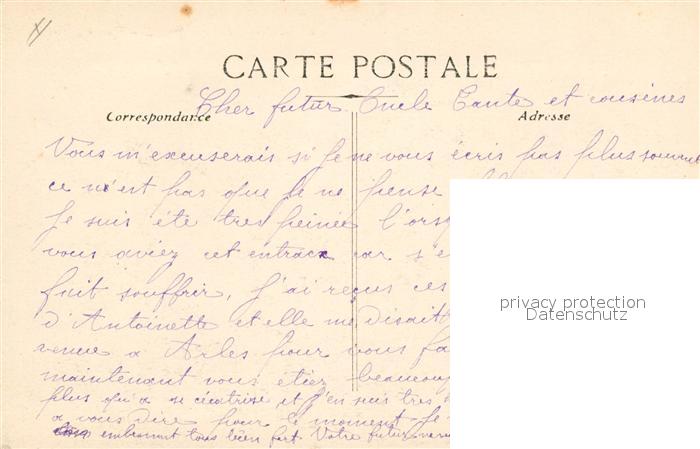 CARTE POSTALE
Cher futur Oncle Tante et cousines
Correspondance
Adresse
Vous m'excuserais si je ne vous écris pas plus souvent
ce n'est pas que je ne pense
Je suis été tres peinée l'orsq
vous aviez cet entrax car s'e
fait souffrir, J'ai reçus ces
d'Antoinette et elle me disait
venue a Arles pour vous fa
maintenant vous étiez beaucoup
plus qu'a se cicatrisé et j'en suis tres
a vous dire pour le moment Je
embrassant tous bien fort Votre futur
privacy protection
Datenschutz